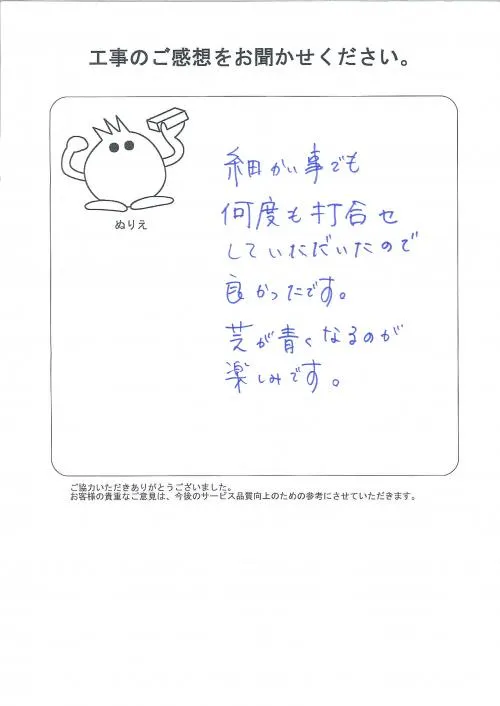 工事のご感想をお聞かせください。
ぬりえ
細かい事でも
何度も打合せ
していただいたので
良かったです。
芝が青くなるのが
楽しみです。
ご協力いただきありがとうございました。
お客様の貴重なご意見は、今後のサービス品質向上のための参考にさせていただきます。